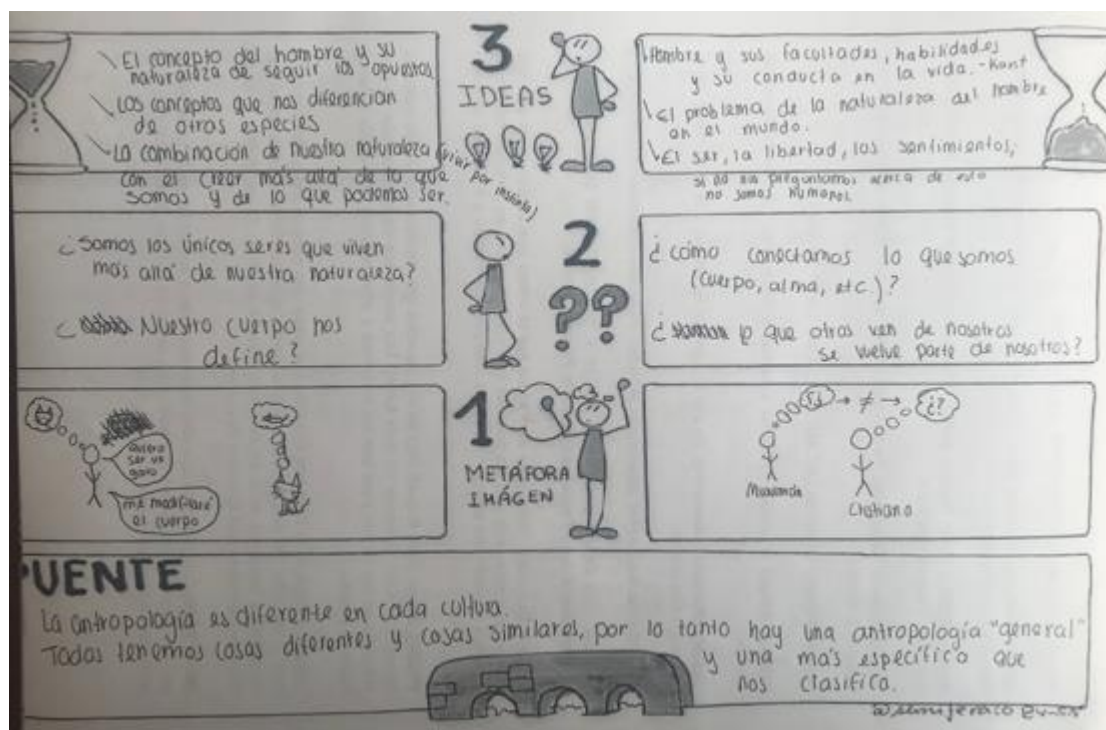 \ El concepto del hombre y su
naturaleza de seguir los opuestos
\ Los conceptos que nos diferencian
de otras especies
\ La combinación de nuestra naturaleza (vivir por instinto)
con el creer más allá de lo que
somos y de lo que podemos ser.
3
IDEAS
Hombre y sus facultades, habilidades
y su conducta en la vida. - Kant
El problema de la naturaleza del hombre
en el mundo.
El ser, la libertad, los sentimientos,
si no nos preguntamos acerca de esto
no somos humanos.
¿Somos los únicos seres que viven
más allá de nuestra naturaleza?
¿Nuestro cuerpo nos
define?
2
??
¿cómo conectamos lo que somos
(cuerpo, alma, etc.)?
¿lo que otros ven de nosotros
se vuelve parte de nosotros?
quiero
ser un
gato
me modificaré
el cuerpo
1
METÁFORA
IMÁGEN
→ ≠ →
¿?
PUENTE
La antropología es diferente en cada cultura.
Todos tenemos cosas diferentes y cosas similares, por lo tanto hay una antropología "general"
y una más específico que
nos clasifica.